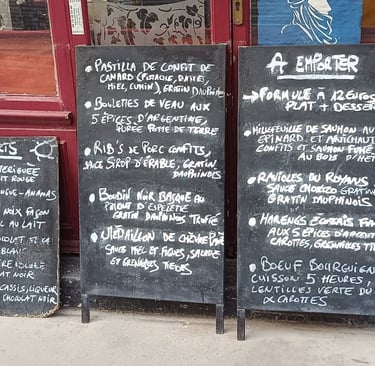 RTS
FRUIT ROUGE
- ANANAS
NOIX FAÇON
AU LAIT
BLANC
CASSIS, LIQUEUR
CHOCOLAT NOIR
PASTILLA DE CONFIT DE
CANARD (PISTACHE, DATTE,
MIEL, CUMIN), GRATIN DAUPHINOIS
BOULETTES DE VEAU AUX
5 ÉPICES D'ARGENTINE,
PURÉE POMME DE TERRE
RIB'S DE PORC CONFITS,
SAUCE SIROP D'ÉRABLE, GRATIN
DAUPHINOIS
BOUDIN NOIR BASQUE AU
PIMENT D'ESPELETTE
GRATIN DAUPHINOIS TRUFFÉ
MÉDAILLON DE CHÈVRE PANÉ
SAUCE MIEL ET FIGUES, SALADE
ET GRENAILLES TIÈDES
A EMPORTER
FORMULE À 12 EUROS
PLAT + DESSERT
MILLEFEUILLE DE SAUMON AU
EPINARD ET ARTICHAUT
CONFITS ET SAUMON FUMÉ
AU BOIS D'HÊT
RAVIOLES DU ROYANS
SAUCE CHORIZO GRATIN
GRATIN DAUPHINOIS
HARENGS ÉCOSSAIS FUM
AUX 5 ÉPICES D'
CAROTTES, GRENAILLES TIÈ
BOEUF BOURGUIGNON
CUISSON 5 HEURES,
LENTILLES VERTE DU
CAROTTES